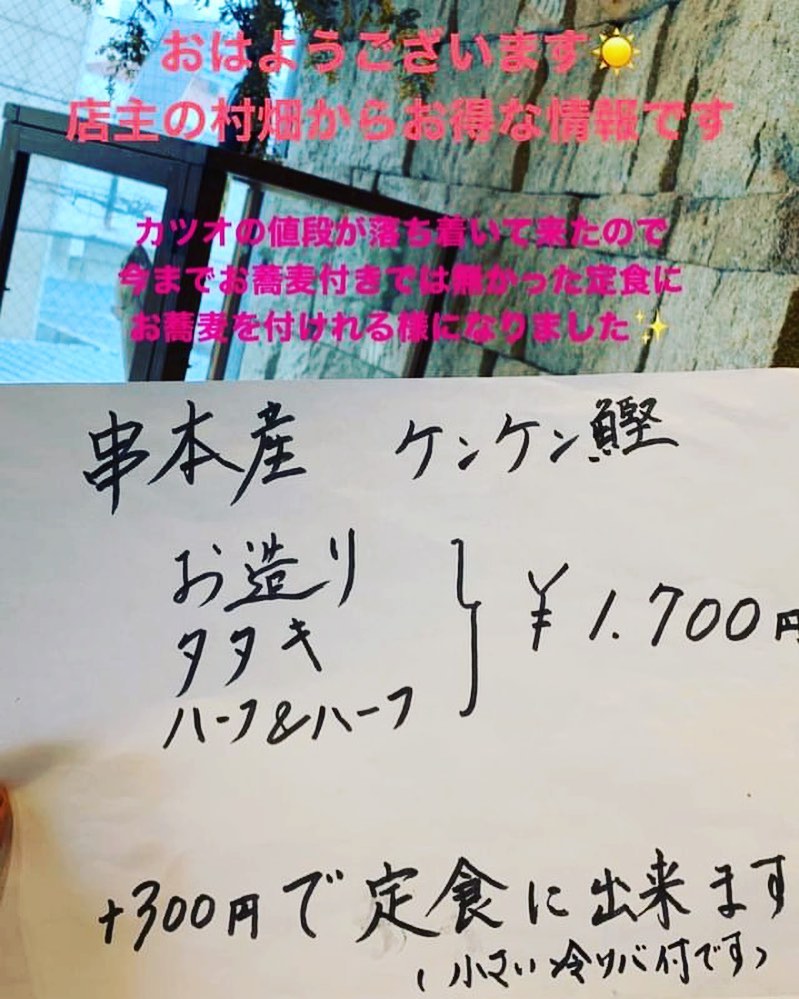 おはようございます☀️
店主の村畑からお得な情報です
カツオの値段が落ち着いて来たので
今までお蕎麦付きでは無かった定食に
お蕎麦を付けれる様になりました✨
串本産 ケンケン鰹
お造り
タタキ
ハーフ&ハーフ
¥1.700円
+300円で定食に出来ます
(小さい冷ソバ付です)